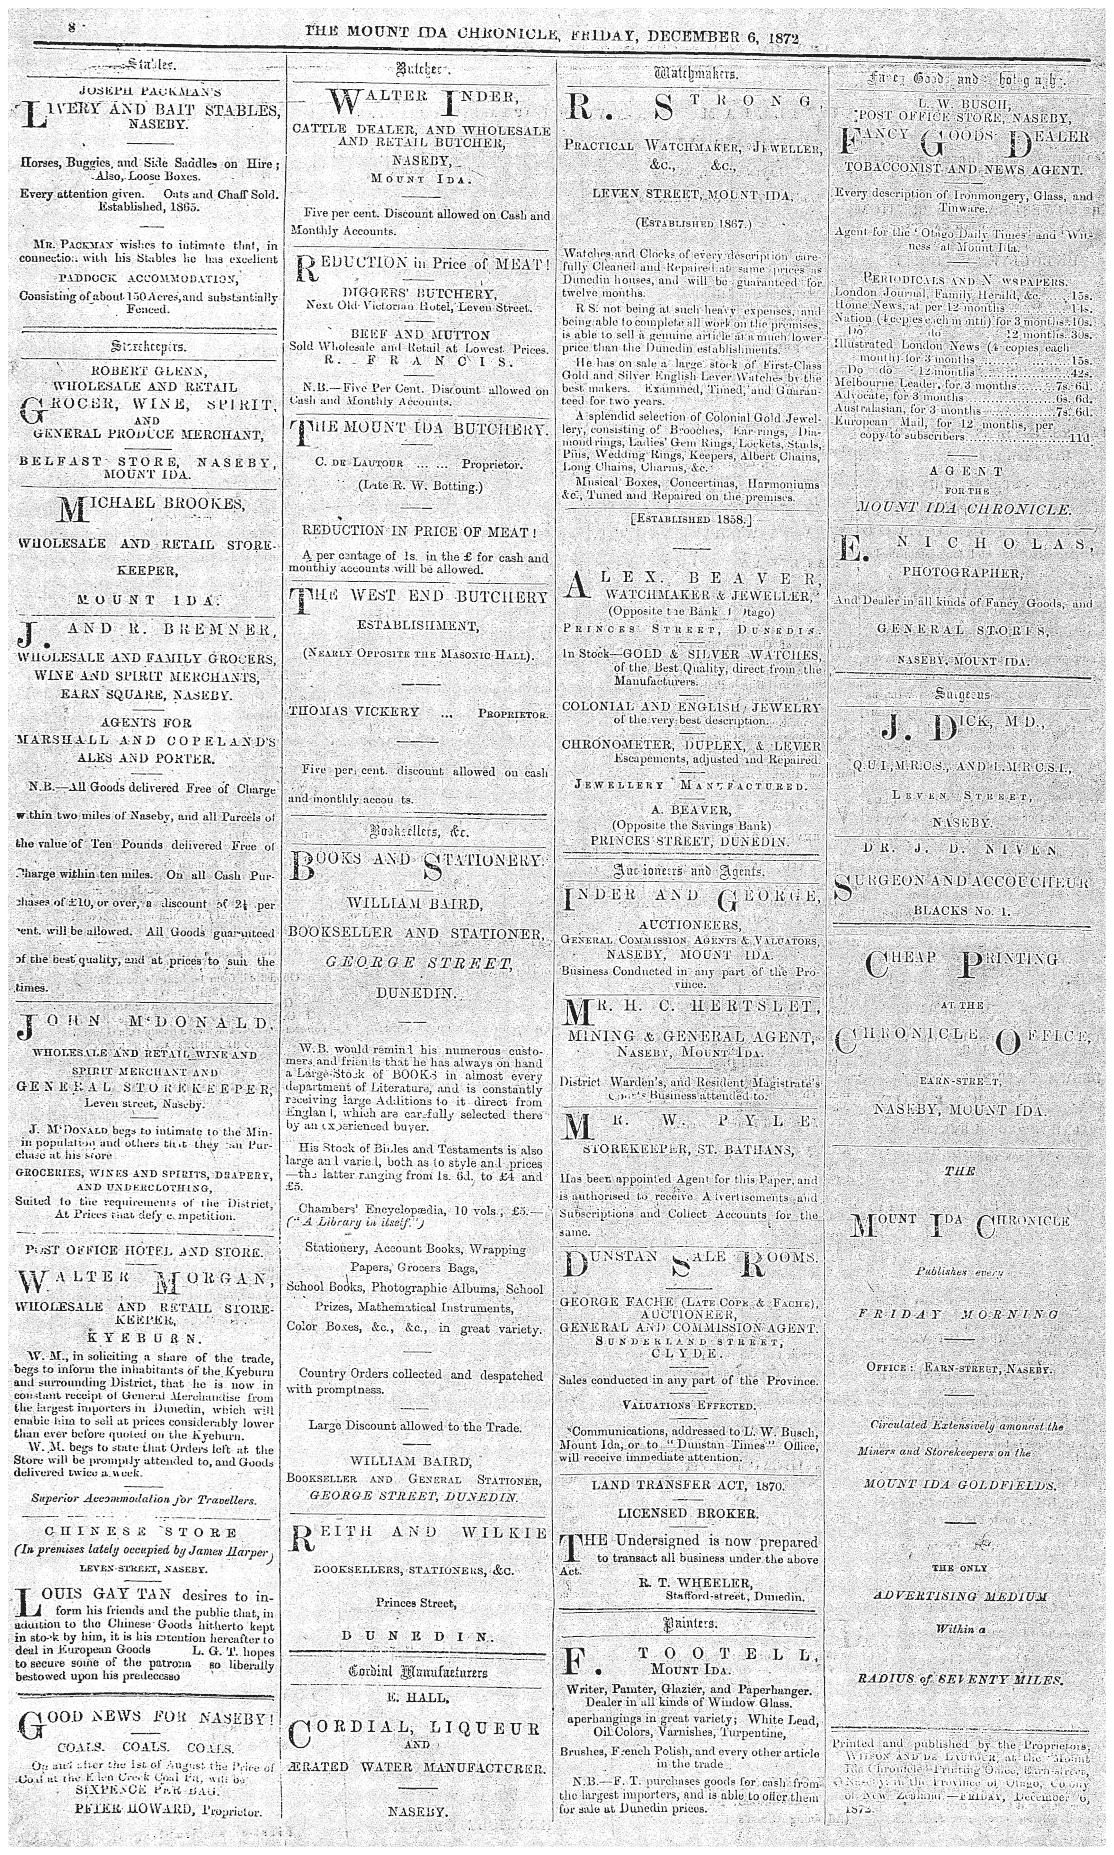 8
THE MOUNT IDA CHRONICLE, FRIDAY, DECEMBER 6, 1872
Stables.
JOSEPH PACKMAN'S
LIVERY AND BAIT STABLES,
NASEBY.
Horses, Buggies, and Side Saddles on Hire;
Also, Loose Boxes.
Every attention given. Oats and Chaff Sold.
Established, 1865.
MR. PACKMAN wishes to intimate that, in
connection with his Stables he has excellent
PADDOCK ACCOMMODATION,
Consisting of about 150 Acres, and substantially
Fenced.
Storekeepers.
ROBERT GLENN,
WHOLESALE AND RETAIL
GROCER, WINE, SPIRIT,
AND
GENERAL PRODUCE MERCHANT,
BELFAST STORE, NASEBY,
MOUNT IDA.
MICHAEL BROOKES,
WHOLESALE AND RETAIL STORE-
KEEPER,
MOUNT IDA.
J. AND R. BREMNER,
WHOLESALE AND FAMILY GROCERS,
WINE AND SPIRIT MERCHANTS,
EARN SQUARE, NASEBY.
AGENTS FOR
MARSHALL AND COPELAND'S
ALES AND PORTER.
N.B.—All Goods delivered Free of Charge
within two miles of Naseby, and all Parcels of
the value of Ten Pounds delivered Free of
Charge within ten miles. On all Cash Pur-
chases of £10, or over, a discount of 2½ per
cent. will be allowed. All Goods guaranteed
of the best quality, and at prices to suit the
times.
JOHN M'DONALD,
WHOLESALE AND RETAIL WINE AND
SPIRIT MERCHANT AND
GENERAL STOREKEEPER,
Leven street, Naseby.
J. M'DONALD begs to intimate to the Min-
in population and others that they can Pur-
chase at his store
GROCERIES, WINES AND SPIRITS, DRAPERY,
AND UNDERCLOTHING,
Suited to the requirements of the District,
At Prices that defy competition.
POST OFFICE HOTEL AND STORE.
WALTER MORGAN,
WHOLESALE AND RETAIL STORE-
KEEPER,
KYEBURN.
W. M., in soliciting a share of the trade,
begs to inform the inhabitants of the Kyeburn
and surrounding District, that he is now in
constant receipt of General Merchandise from
the largest importers in Dunedin, which will
enable him to sell at prices considerably lower
than ever before quoted on the Kyeburn.
W. M. begs to state that Orders left at the
Store will be promptly attended to, and Goods
delivered twice a week.
Superior Accommodation for Travellers.
CHINESE STORE
(In premises lately occupied by James Harper)
LEVEN-STREET, NASEBY.
LOUIS GAY TAN desires to in-
form his friends and the public that, in
addition to the Chinese Goods hitherto kept
in stock by him, it is his intention hereafter to
deal in European Goods L. G. T. hopes
to secure some of the patrona so liberally
bestowed upon his predecesso
GOOD NEWS FOR NASEBY!
COALS. COALS. COALS.
On and after the 1st of August the Price of
Coal at the Eden Creek Coal Pit, will be
SIXPENCE PER BAG.
PETER HOWARD, Proprietor.
Butcher.
WALTER INDER,
CATTLE DEALER, AND WHOLESALE
AND RETAIL BUTCHER,
NASEBY,
MOUNT IDA.
Five per cent. Discount allowed on Cash and
Monthly Accounts.
REDUCTION in Price of MEAT!
DIGGERS' BUTCHERY,
Next Old Victorian Hotel, Leven Street.
BEEF AND MUTTON
Sold Wholesale and Retail at Lowest Prices.
R. FRANCIS.
N.B.—Five Per Cent. Discount allowed on
Cash and Monthly Accounts.
THE MOUNT IDA BUTCHERY.
C. DE LAUTOUR ... ... Proprietor.
(Late R. W. Botting.)
REDUCTION IN PRICE OF MEAT!
A per centage of 1s. in the £ for cash and
monthly accounts will be allowed.
THE WEST END BUTCHERY
ESTABLISHMENT,
(NEARLY OPPOSITE THE MASONIC HALL).
THOMAS VICKERY ... PROPRIETOR.
Five per cent. discount allowed on cash
and monthly accou ts.
Booksellers, &c.
BOOKS AND STATIONERY.
WILLIAM BAIRD,
BOOKSELLER AND STATIONER,
GEORGE STREET,
DUNEDIN.
W.B. would remind his numerous custo-
mers and friends that he has always on hand
a Large Stock of BOOKS in almost every
department of Literature, and is constantly
receiving large Additions to it direct from
England, which are carefully selected there
by an experienced buyer.
His Stock of Bibles and Testaments is also
large and varied, both as to style and prices
—the latter ranging from 1s. 6d. to £4 and
£5.
Chambers' Encyclopædia, 10 vols., £5.—
("A Library in itself.")
Stationery, Account Books, Wrapping
Papers, Grocers Bags,
School Books, Photographic Albums, School
Prizes, Mathematical Instruments,
Color Boxes, &c., &c., in great variety.
Country Orders collected and despatched
with promptness.
Large Discount allowed to the Trade.
WILLIAM BAIRD,
BOOKSELLER AND GENERAL STATIONER,
GEORGE STREET, DUNEDIN.
REITH AND WILKIE
BOOKSELLERS, STATIONERS, &C.
Princes Street,
DUNEDIN.
Cordial Manufacturers
E. HALL,
CORDIAL, LIQUEUR
AND
ÆRATED WATER MANUFACTURER.
NASEBY.
Watchmakers.
R. STRONG,
PRACTICAL WATCHMAKER, JEWELLER,
&c., &c.,
LEVEN STREET, MOUNT IDA,
(ESTABLISHED 1867.)
Watches and Clocks of every description care-
fully Cleaned and Repaired at same prices as
Dunedin houses, and will be guaranteed for
twelve months.
R S. not being at such heavy expenses, and
being able to complete all work on the premises,
is able to sell a genuine article at a much lower
price than the Dunedin establishments.
He has on sale a large stock of First-Class
Gold and Silver English Lever Watches by the
best makers. Examined, Timed, and Guaran-
teed for two years.
A splendid selection of Colonial Gold Jewel-
lery, consisting of Brooches, Ear-rings, Dia-
mond rings, Ladies' Gem Rings, Lockets, Studs,
Pins, Wedding Rings, Keepers, Albert Chains,
Long Chains, Charms, &c.
Musical Boxes, Concertinas, Harmoniums
&c., Tuned and Repaired on the premises.
[ESTABLISHED 1858.]
ALEX. BEAVER,
WATCHMAKER & JEWELLER,
(Opposite the Bank of Otago)
PRINCES STREET, DUNEDIN.
In Stock—GOLD & SILVER WATCHES,
of the Best Quality, direct from the
Manufacturers.
COLONIAL AND ENGLISH JEWELRY
of the very best description.
CHRONOMETER, DUPLEX, & LEVER
Escapements, adjusted and Repaired.
JEWELLERY MANUFACTURED.
A. BEAVER,
(Opposite the Savings Bank)
PRINCES STREET, DUNEDIN.
Auctioneers and Agents.
INDER AND GEORGE,
AUCTIONEERS,
GENERAL COMMISSION AGENTS & VALUATORS,
NASEBY, MOUNT IDA.
Business Conducted in any part of the Pro-
vince.
MR. H. C. HERTSLET,
MINING & GENERAL AGENT,
NASEBY, MOUNT IDA.
District Warden's, and Resident Magistrate's
Court's Business attended to.
MR. W. PYLE
STOREKEEPER, ST. BATHANS,
Has been appointed Agent for this Paper, and
is authorised to receive Advertisements and
Subscriptions and Collect Accounts for the
same.
DUNSTAN SALE ROOMS.
GEORGE FACHE (LATE COPE & FACHE),
AUCTIONEER,
GENERAL AND COMMISSION AGENT.
SUNDERLAND STREET,
CLYDE.
Sales conducted in any part of the Province.
VALUATIONS EFFECTED.
Communications, addressed to L. W. Busch,
Mount Ida, or to "Dunstan Times" Office,
will receive immediate attention.
LAND TRANSFER ACT, 1870.
LICENSED BROKER.
THE Undersigned is now prepared
to transact all business under the above
Act.
R. T. WHEELER,
Stafford-street, Dunedin.
Painters.
F. TOOTELL,
MOUNT IDA.
Writer, Painter, Glazier, and Paperhanger.
Dealer in all kinds of Window Glass.
aperhangings in great variety; White Lead,
Oil Colors, Varnishes, Turpentine,
Brushes, French Polish, and every other article
in the trade
N.B.—F. T. purchases goods for cash from
the largest importers, and is able to offer them
for sale at Dunedin prices.
Fancy Goods and Photographs.
L. W. BUSCH,
POST OFFICE STORE, NASEBY,
FANCY GOODS DEALER
TOBACCONIST AND NEWS AGENT.
Every description of Ironmongery, Glass, and
Tinware.
Agent for the 'Otago Daily Times' and 'Wit-
ness' at Mount Ida.
PERIODICALS AND NEWSPAPERS.
London Journal, Family Herald, &c. 15s.
Home News, at per 12 months 14s.
Nation (4 copies each mnth) for 3 months 10s.
Do do 12 months 30s.
Illustrated London News (4 copies each
month) for 3 months 15s.
Do do 12 months 42s.
Melbourne Leader, for 3 months 7s. 6d.
Advocate, for 3 months 6s. 6d.
Australasian, for 3 months 7s. 6d.
European Mail, for 12 months, per
copy to subscribers 11d
AGENT
FOR THE
MOUNT IDA CHRONICLE.
E. NICHOLAS,
PHOTOGRAPHER,
And Dealer in all kinds of Fancy Goods, and
GENERAL STORES,
NASEBY, MOUNT IDA.
Surgeons
J. DICK, M.D.,
Q.U.I., M.R.C.S., AND L.M.R.C.S.I.,
LEVEN STREET,
NASEBY.
DR. J. D. NIVEN
SURGEON AND ACCOUCHEUR
BLACKS No. 1.
CHEAP PRINTING
AT THE
CHRONICLE OFFICE,
EARN-STREET,
NASEBY, MOUNT IDA.
THE
MOUNT IDA CHRONICLE
Publishes every
FRIDAY MORNING
OFFICE: EARN-STREET, NASEBY.
Circulated Extensively amongst the
Miners and Storekeepers on the
MOUNT IDA GOLDFIELDS.
THE ONLY
ADVERTISING MEDIUM
Within a
RADIUS of SEVENTY MILES.
Printed and published by the Proprietors,
WILSON AND DE LAUTOUR, at the Mount
Ida Chronicle Printing Office, Earn-street,
Naseby, in the Province of Otago, Colony
of New Zealand.—FRIDAY, December 6,
1872.